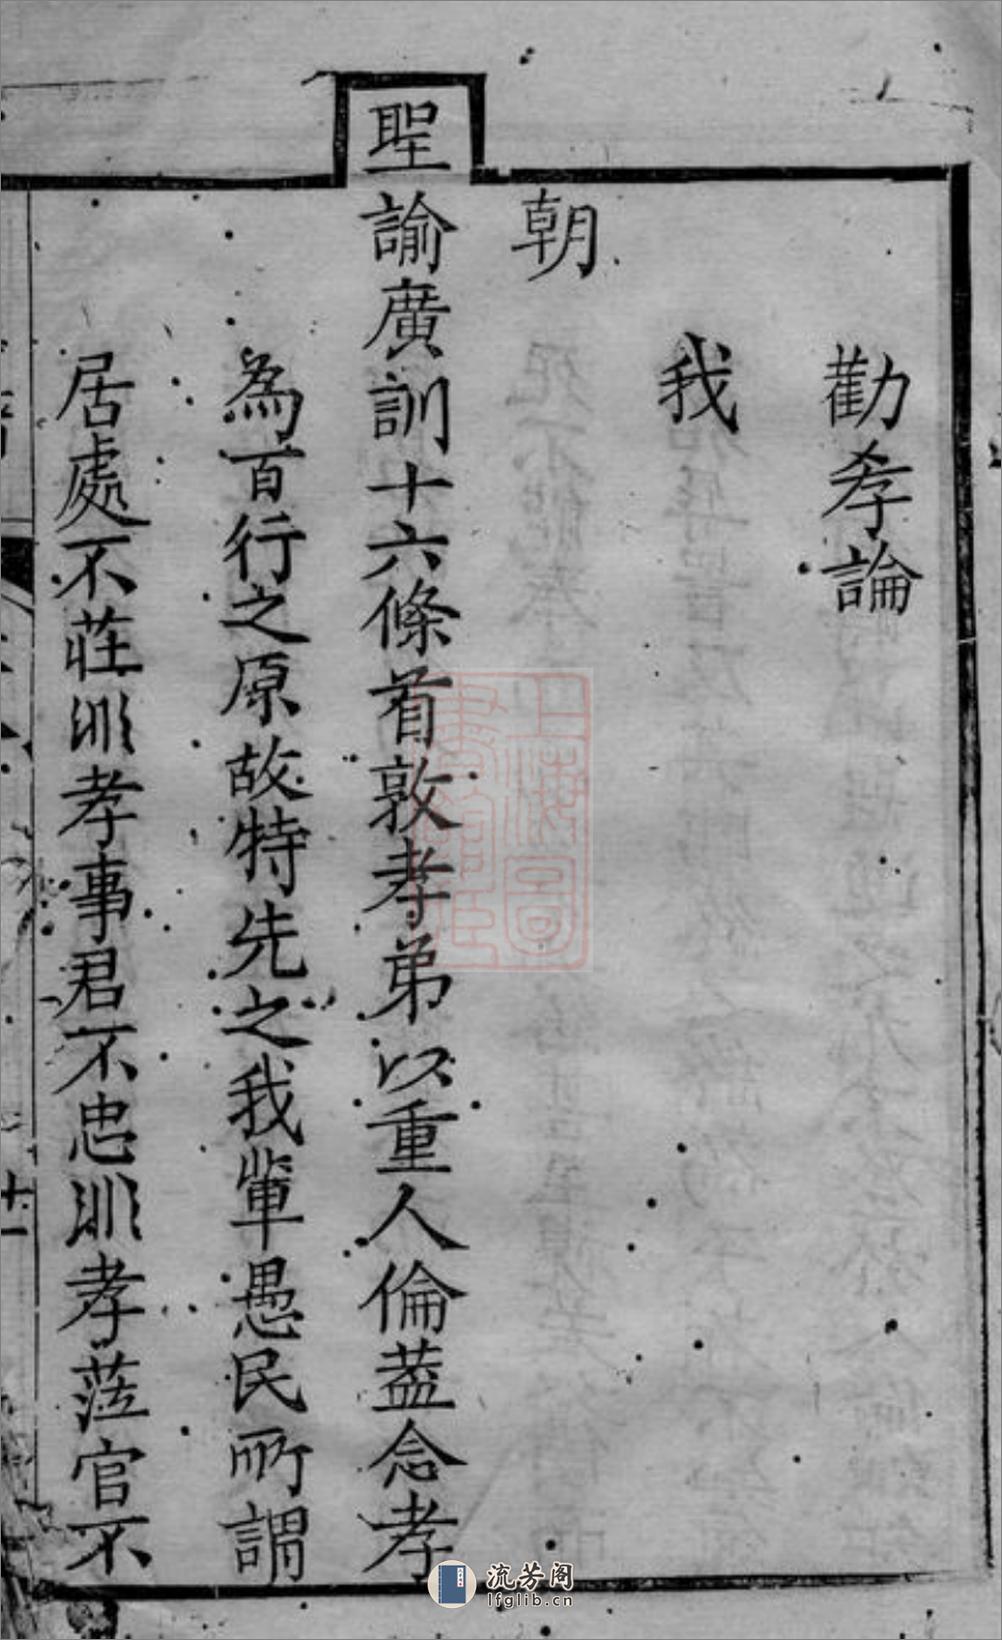 勸孝論
我
朝
聖諭廣訓十六條首敦孝弟以重人倫葢念孝
為百行之原故特先之我輩愚民所謂
居處不莊非孝事君不忠非孝蒞官不
十一
上海圖書館藏
流芳阁
lfglib.cn